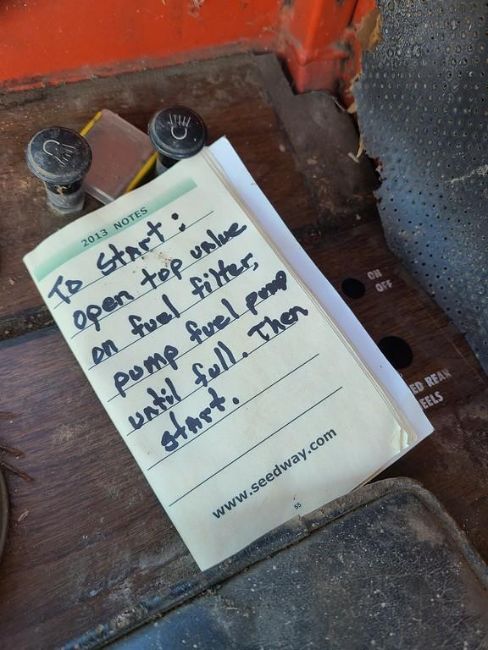 2013 NOTES
To Start:
open top valve
on fuel filter,
pump fuel pump
until full. Then
start.
www.seedway.com
55
ON
OFF
ED REAR
EELS